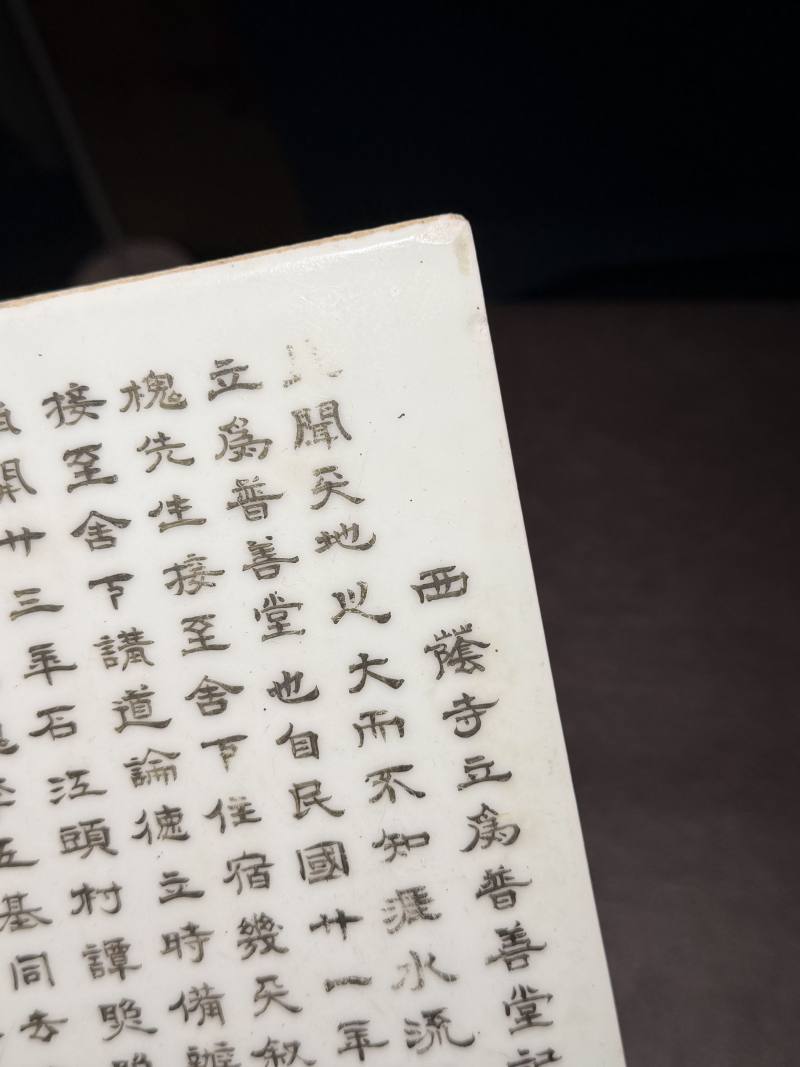 西蔭寺立為普善堂記
聞天地以大而不知涯水流
立為普善堂也自民國廿一年
槐先生接至舍下住宿幾天敘
接至舍下講道論德立時備辦
開廿三年石江頭村譚
五基同去